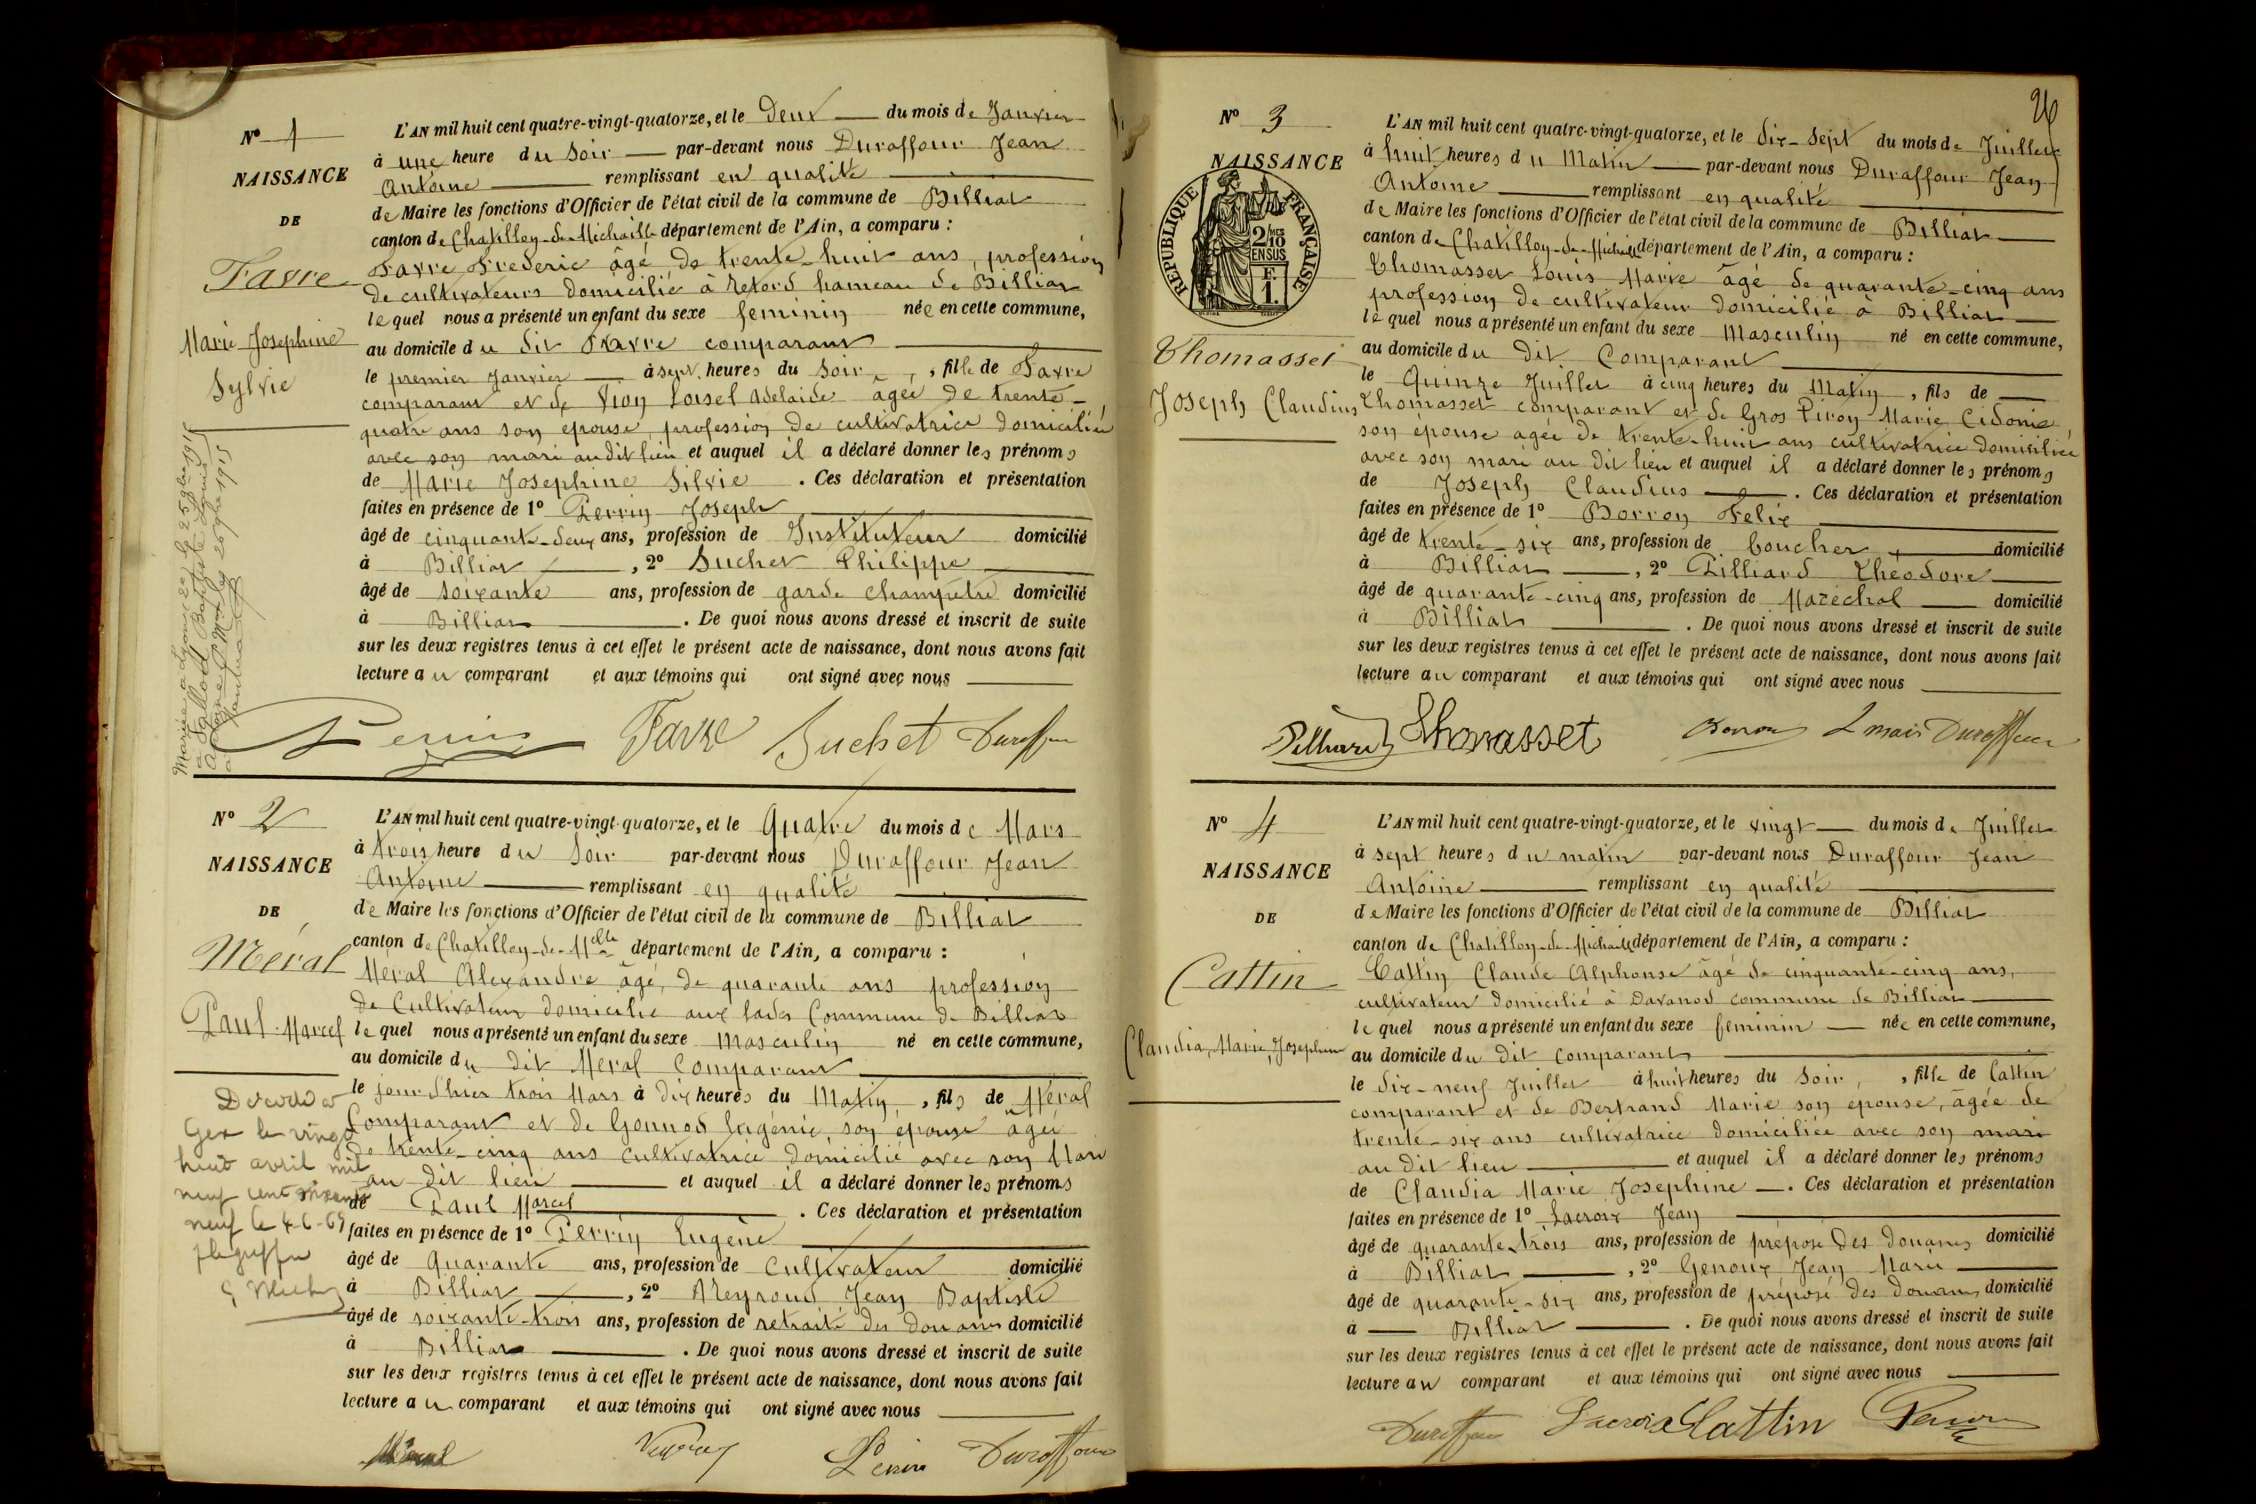 N° 1
NAISSANCE
DE
Favre
Marie Josephine
Sylvie
L'AN mil huit cent quatre-vingt-quatorze, et le Deux du mois de Janvier
à une heure du Soir par-devant nous Duraffour Jean
Antoine remplissant en qualité
de Maire les fonctions d'Officier de l'état civil de la commune de Billiat
canton de Chatillon-de-Michaille département de l'Ain, a comparu :
Favre Frederic âgé de trente-huit ans, profession
de cultivateurs domicilié à Retord hameau de Billiat
lequel nous a présenté un enfant du sexe feminin née en cette commune,
au domicile du dit Favre comparant
le premier Janvier à sept heures du Soir, fille de Favre
comparant et de Loisel Adelaide âgée de trente-
quatre ans son epouse, profession de cultivatrice domiciliée
avec son mari au dit lieu et auquel il a déclaré donner les prénoms
de Marie Josephine Silvie . Ces déclaration et présentation
faites en présence de 1° Perrin Joseph
âgé de cinquante-deux ans, profession de Instituteur domicilié
à Billiat , 2° Suchet Philippe
âgé de soixante ans, profession de garde champêtre domicilié
à Billiat . De quoi nous avons dressé et inscrit de suite
sur les deux registres tenus à cet effet le présent acte de naissance, dont nous avons fait
lecture au comparant et aux témoins qui ont signé avec nous
Perrin Favre Suchet Duraffour
N° 2
NAISSANCE
DE
Méral
Paul Marcel
Décédé à
Gex le vingt
huit avril mil
neuf cent soixante
neuf le 4-6-69
L'AN mil huit cent quatre-vingt-quatorze, et le Quatre du mois de Mars
à trois heure du Soir par-devant nous Duraffour Jean
Antoine remplissant en qualité
de Maire les fonctions d'Officier de l'état civil de la commune de Billiat
canton de Chatillon-de-Mlle département de l'Ain, a comparu :
Méral Alexandre âgé, de quarante ans profession
de Cultivateur domicilié aux Commune de Billiat
lequel nous a présenté un enfant du sexe Masculin né en cette commune,
au domicile du dit Méral Comparant
le jour d'hier trois Mars à Dix heures du Matin, fils de Méral
Comparant et de Gounod Eugénie, son epouse âgée
de trente-cinq ans cultivatrice domicilié avec son Mari
au dit lieu et auquel il a déclaré donner les prénoms
de Paul Marcel . Ces déclaration et présentation
faites en présence de 1° Perrin Eugène
âgé de Quarante ans, profession de Cultivateur domicilié
à Billiat , 2° Reyroud Jean Baptiste
âgé de soixante-trois ans, profession de retraité des douanes domicilié
à Billiat . De quoi nous avons dressé et inscrit de suite
sur les deux registres tenus à cet effet le présent acte de naissance, dont nous avons fait
lecture au comparant et aux témoins qui ont signé avec nous
Méral Perrin Duraffour
26
N° 3
NAISSANCE
REPUBLIQUE FRANÇAISE
2/10 MES EN SUS
F. 1.
Thomasset
Joseph Claudius
L'AN mil huit cent quatre-vingt-quatorze, et le dix-sept du mois de Juillet
à huit heures du Matin par-devant nous Duraffour Jean
Antoine remplissant en qualité
de Maire les fonctions d'Officier de l'état civil de la commune de Billiat
canton de Chatillon-de-Michaille département de l'Ain, a comparu :
Thomasset Louis Marie âgé de quarante-cinq ans
profession de cultivateur domicilié à Billiat
lequel nous a présenté un enfant du sexe Masculin né en cette commune,
au domicile du Dit Comparant
le Quinze Juillet à cinq heures du Matin, fils de
Thomasset comparant et de Gros Piron Marie Cidonie
son épouse agée de trente-huit ans cultivatrice domiciliée
avec son mari au dit lieu et auquel il a déclaré donner les prénoms
de Joseph Claudius . Ces déclaration et présentation
faites en présence de 1° Borron Felix
âgé de trente-six ans, profession de boucher domicilié
à Billiat , 2° Pilliard Théodore
âgé de quarante-cinq ans, profession de Maréchal domicilié
à Billiat . De quoi nous avons dressé et inscrit de suite
sur les deux registres tenus à cet effet le présent acte de naissance, dont nous avons fait
lecture au comparant et aux témoins qui ont signé avec nous
Pilliard Thomasset Borron L maire Duraffour
N° 4
NAISSANCE
DE
Cattin
Claudia, Marie, Josephine
L'AN mil huit cent quatre-vingt-quatorze, et le vingt du mois de Juillet
à sept heures du matin par-devant nous Duraffour Jean
Antoine remplissant en qualité
de Maire les fonctions d'Officier de l'état civil de la commune de Billiat
canton de Chatillon-de-Michaille département de l'Ain, a comparu :
Cattin Claude Alphonse âgé de cinquante-cinq ans,
cultivateur domicilié à Davanod commune de Billiat
lequel nous a présenté un enfant du sexe feminin née en cette commune,
au domicile du dit comparant
le dix-neuf Juillet à huit heures du Soir, fille de Cattin
comparant et de Bertrand Marie son epouse, âgée de
trente-six ans cultivatrice domiciliée avec son mari
au dit lieu et auquel il a déclaré donner les prénoms
de Claudia Marie Josephine . Ces déclaration et présentation
faites en présence de 1° Lacroix Jean
âgé de quarante-trois ans, profession de préposé des douanes domicilié
à Billiat , 2° Genoux Jean Marie
âgé de quarante-six ans, profession de préposé des douanes domicilié
à Billiat . De quoi nous avons dressé et inscrit de suite
sur les deux registres tenus à cet effet le présent acte de naissance, dont nous avons fait
lecture au comparant et aux témoins qui ont signé avec nous
Duraffour Lacroix Cattin